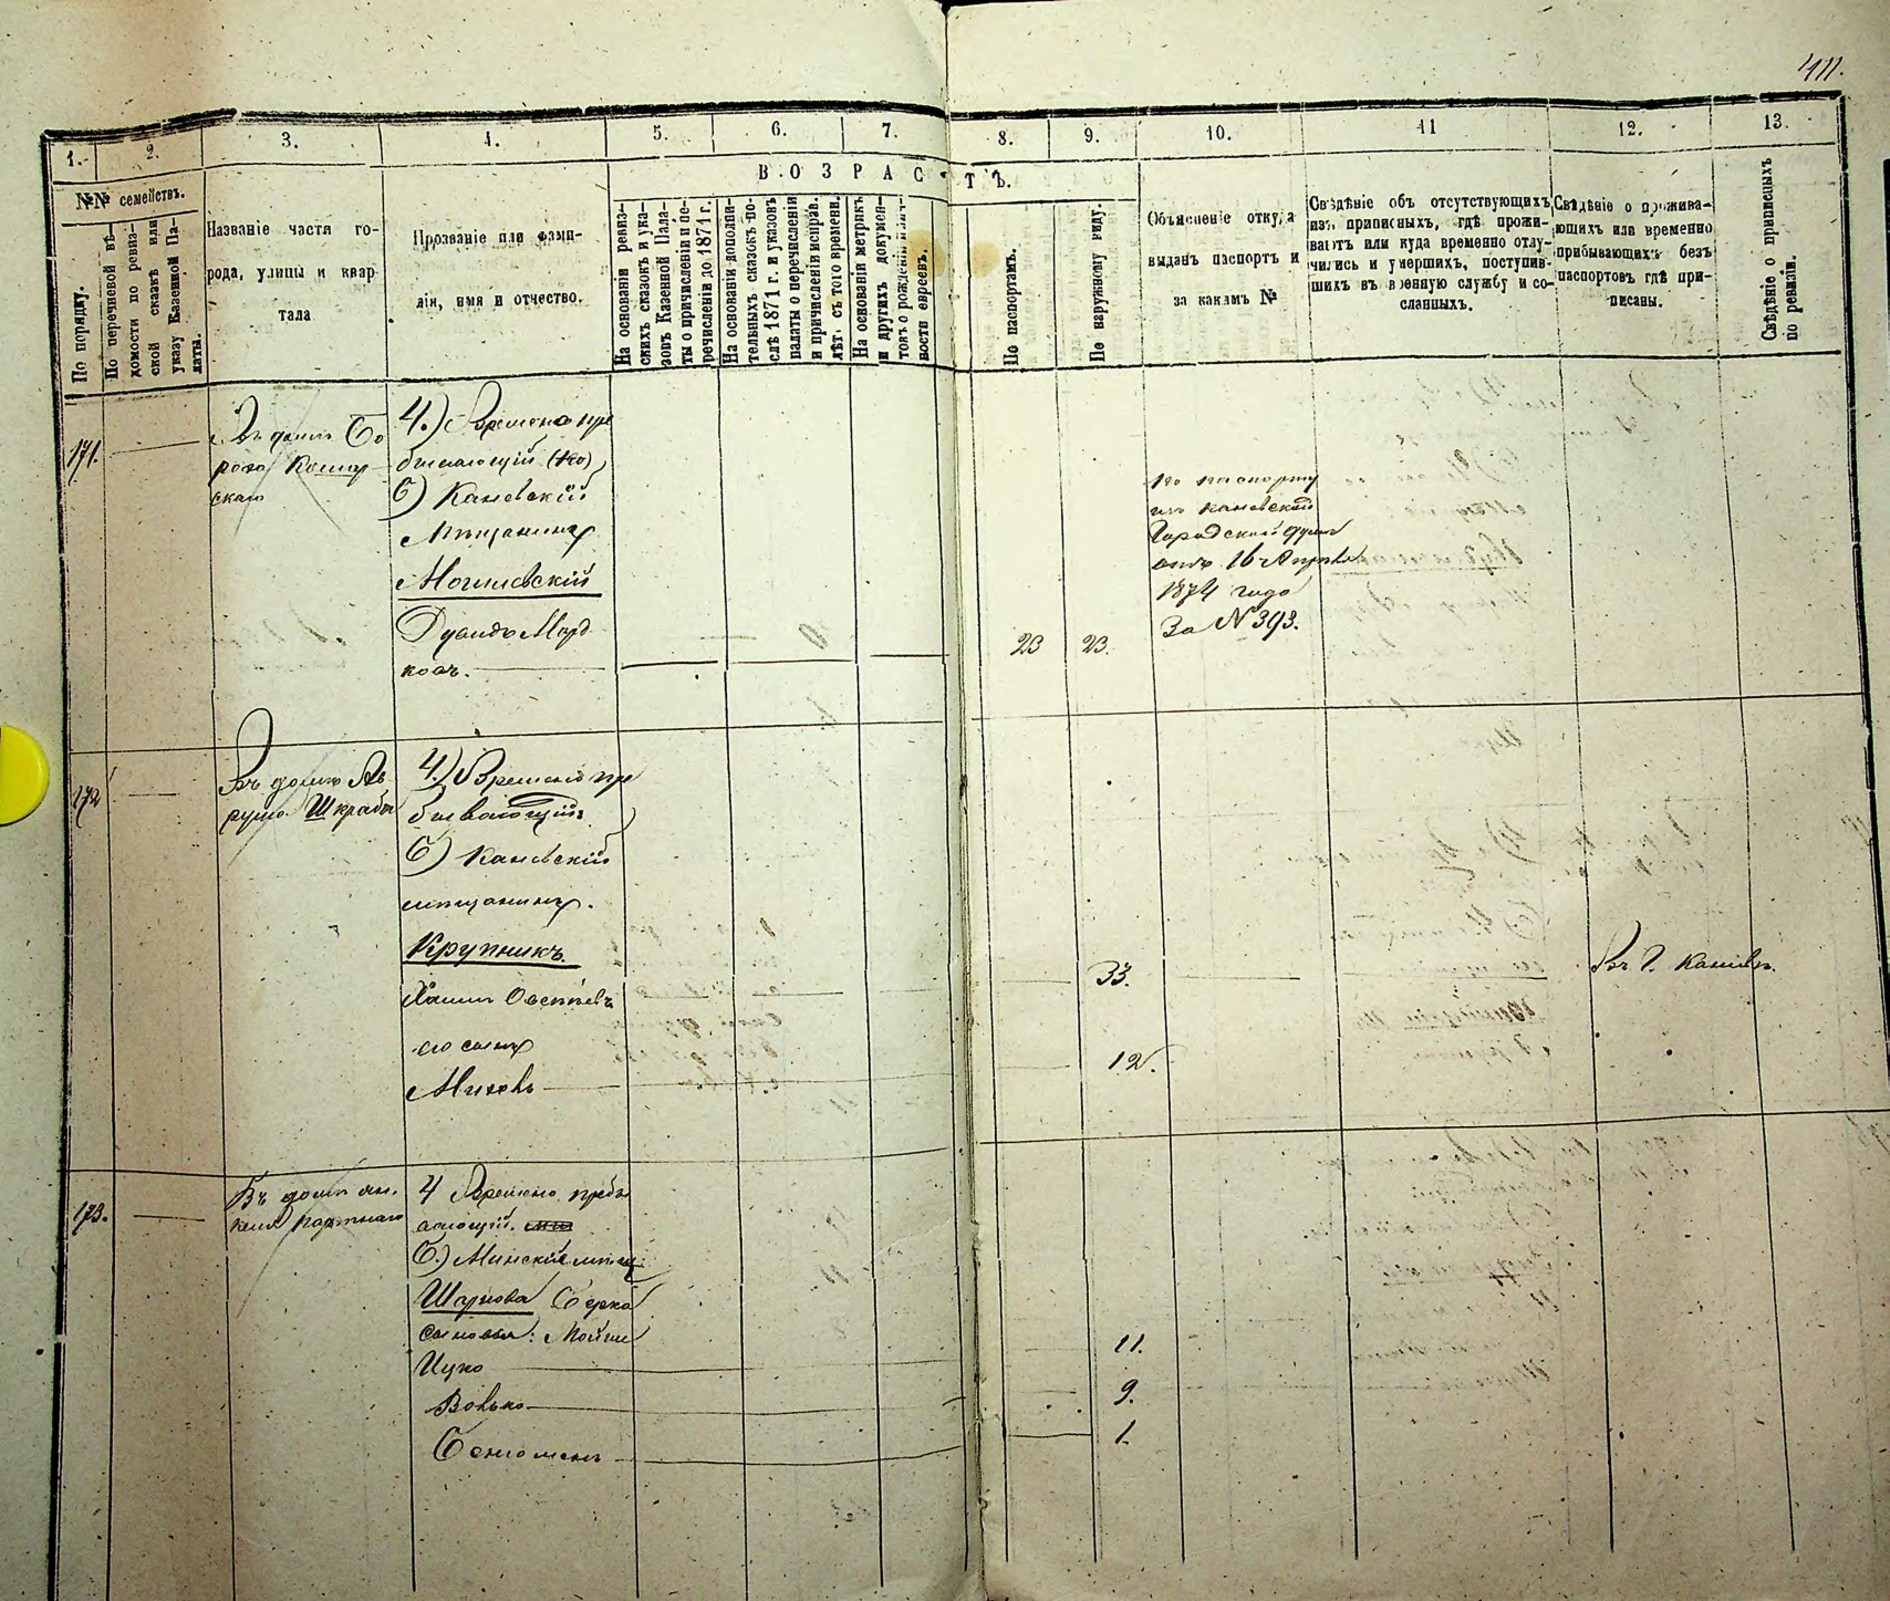 411.
1.
2.
3.
4.
5.
6.
7.
8.
9.
10.
11
12.
13.
№№ семействъ.
По порядку.
По перечневой вѣ-
домости по ревиз-
ской сказкѣ или
указу Казенной Па-
латы.
Названіе части го-
рода, улицы и квар
тала
Прозваніе или фами-
лія, имя и отчество.
ВОЗРАСТЪ.
На основаніи ревиз-
скихъ сказокъ и ука-
зовъ Казенной Пала-
ты о причисленіи и пе-
речисленіи до 1871 г.
На основаніи дополни-
тельныхъ сказокъ по-
слѣ 1871 г. и указовъ
палаты о перечисленіи
и причисленіи исправ.
лѣт. съ того времени.
На основаніи метрикъ
и другихъ докумен-
товъ о рожденіи
ности евреевъ.
По паспортамъ.
По наружному виду.
Объясненіе откуда
выданъ паспортъ и
за какимъ №
Свѣдѣніе объ отсутствующихъ
изъ приписныхъ, гдѣ прожи-
ваютъ или куда временно отлу-
чились и умершихъ, поступив-
шихъ въ военную службу и со-
сланныхъ.
Свѣдѣніе о прожива-
ющихъ или временно
прибывающихъ безъ
паспортовъ гдѣ при-
писаны.
Свѣдѣніе о приписныхъ
по ревизіи.
171.
Въ домѣ Бо
роха
скаго
4.) Времено пре
бывающій
б) Каневскій
Мѣщанинъ
Могилевскій
Дувидъ Морд
ковъ.
23
23.
по паспорту
изъ Каневской
Городской думы
отъ 16 Апрѣля
1874 года
За № 393.
172
Въ домѣ Ав
рума Шкрабы
4.) Времено пре
бывающій:
б) Каневскій
мѣщанинъ.
Крупникъ.
Хаимъ
его сынъ
33.
Въ г. Каневѣ.
12.
173.
Въ домѣ Ян.
келя Портнаго
4 Времено пребы
вающій.
б.) Минскій мѣщ
Берка
сыновья: Мойше
Ицко
Волько
Бенюменъ
11.
9.
1.